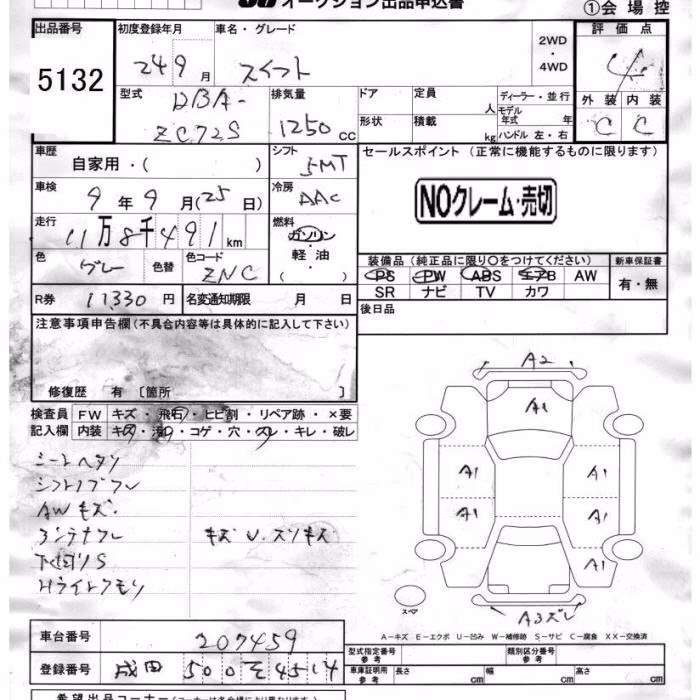 オークション出品申込書
①会場控
出品番号 5132
初度登録年月 24 9月
車名・グレード スイフト
2WD・4WD
評価点 4
外装 内装
C C
型式 DBA-ZC72S
排気量 1250 cc
ドア 形状
定員 人
積載 kg
ディーラー・並行
モデル年式 年
ハンドル 左・右
車歴 自家用・( )
シフト 5MT
セールスポイント (正常に機能するものに限ります)
NOクレーム・売切
車検 9年9月(25日)
冷房 AAC
走行 11万8千491km
燃料 ガソリン・軽油 ( )
色 グレー 色替
色コード ZNC
装備品(純正品に限り○をつけてください)
新車保証書
PS PW ABS エアB AW
SR ナビ TV カワ
有・無
R券 11330円
名変通知期限 月 日
後日品
注意事項申告欄(不具合内容等は具体的に記入して下さい)
修復歴 有 [箇所 ]
検査員 FW キズ・飛石・ヒビ割・リペア跡・×要
記入欄 内装 キズ・汚れ・コゲ・穴・スレ・キレ・破レ
シートヘタリ
シフトノブスレ
AWキズ・
アンテナスレ キズ U. スリキズ
下回りS
Hライトクモリ
A2
A1
A1 A1
A1 A1
A1
スペア
A3ズレ
A-キズ E-エクボ U-凹み W-補修跡 S-サビ C-腐食 XX-交換済
車台番号 207459
登録番号 成田 500 そ 4514
型式指定番号 参考
類別区分番号 参考
車庫証明用 参考 長さ cm 幅 cm 高さ cm
希望出品コーナー